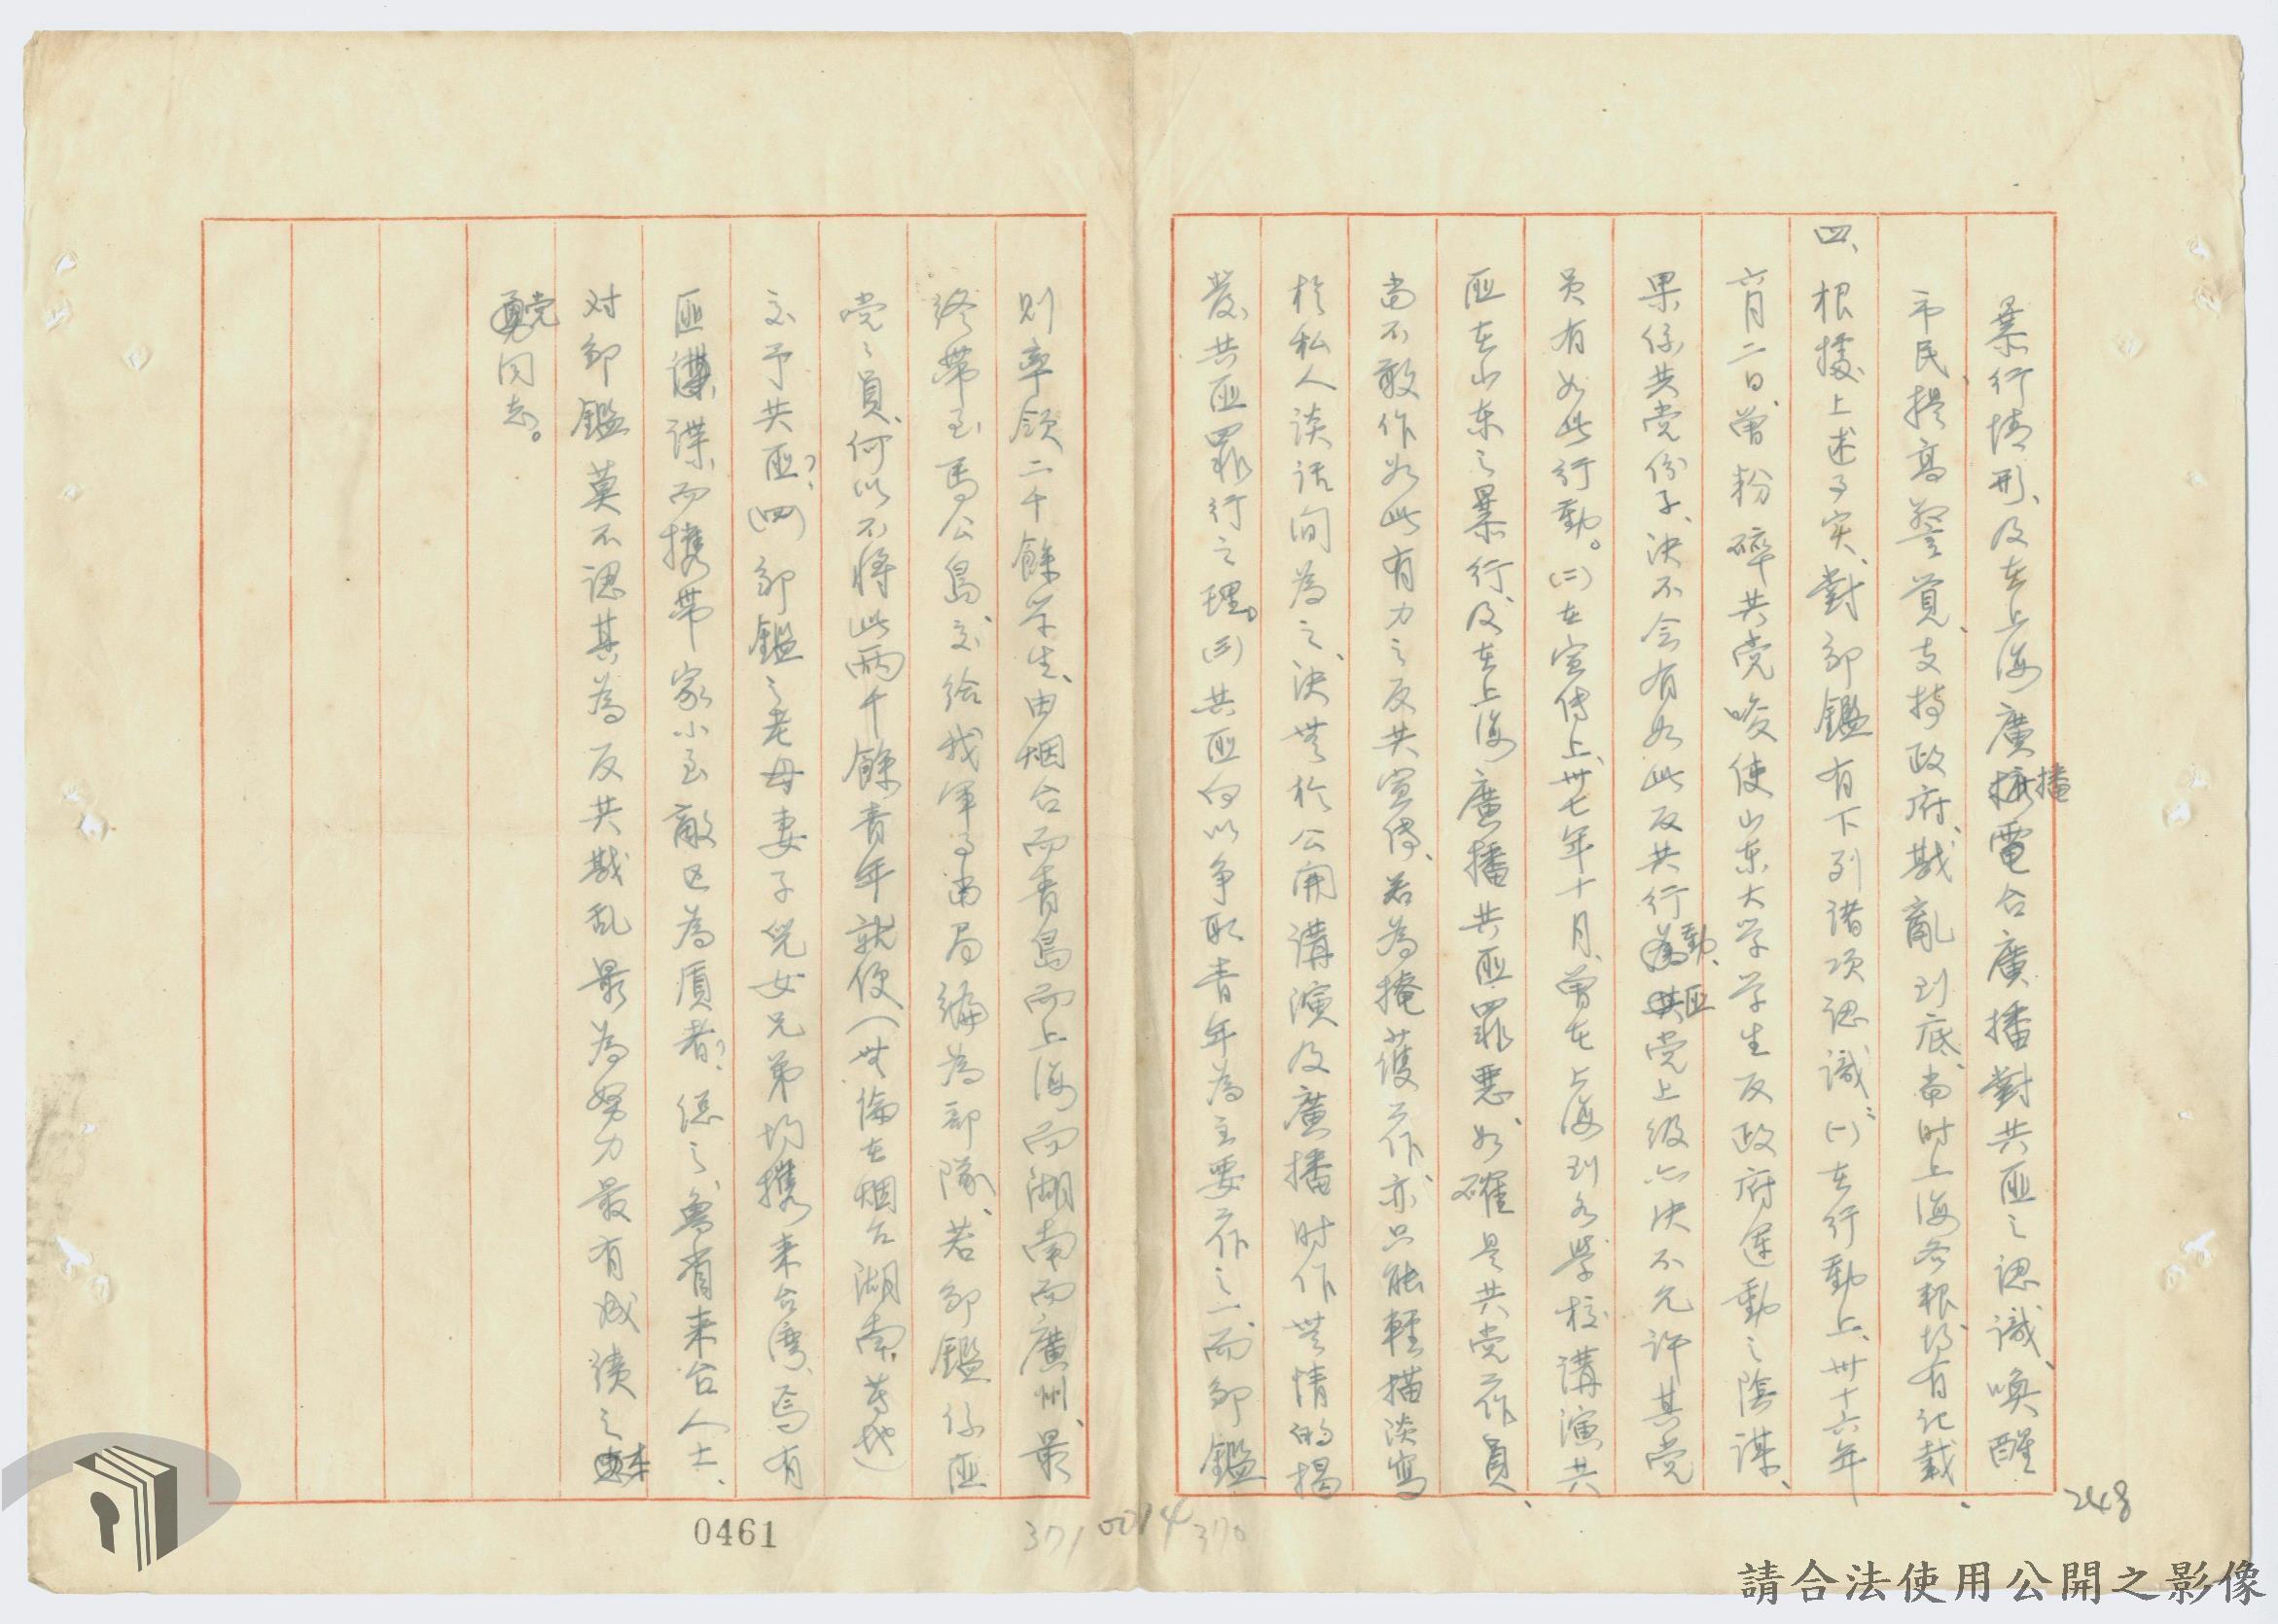 暴行情形、及在上海廣播電台廣播對共匪之認識、喚醒
市民、提高警覺、支持政府、戡亂到底、當时上海各報、均有記載、
四、根據上述事实、對鄒鑑有下列諸項認識：(一)在行動上、卅十六年
六月二日、曾粉碎共党唆使山東大学学生反政府運動之陰謀、
果係共党份子、決不会有如此反共行動、共匪党上級亦决不允许其党
員有如此行動。(二)在宣傳上、卅七年十月、曾在上海到各學校講演共
匪在山东之暴行、及在上海廣播共匪罪惡、如確是共党工作員、
當不敢作如此有力之反共宣傳、若為掩護工作、亦只能輕描淡寫
於私人談話间為之、決無於公開講演及廣播时作無情的揭
發共匪罪行之理。(三)共匪向以争取青年為主要工作之一、而鄒鑑
則率領二千餘学生、由烟台而青島而上海而湖南而廣州、最
終帶至馬公島、交給我軍事當局編為部隊、若鄒鑑係匪
党之員、何以不將此兩千餘青年就便(無論在烟台湖南等地)
交予共匪？(四)鄒鑑之老母妻子兒女兄弟均攜来台湾、焉有
匪諜、而攜帶家小至敵區為質者？總之、魯省来台人士、
对鄒鑑莫不認其為反共戡乱最為努力最有成績之
党同志。
播
248
370
0014
371
0461
請合法使用公開之影像